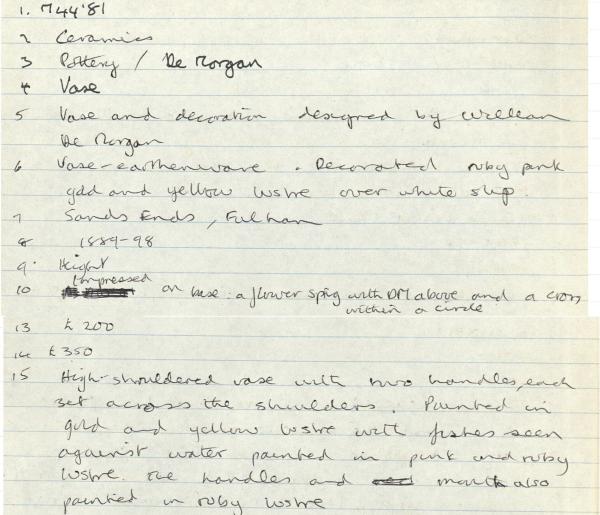 1. M44'81
2 Ceramics
3 Pottery / De Morgan
4 Vase
5 Vase and decoration designed by William
De Morgan
6 Vase - earthenware. Decorated ruby pink
gold and yellow lustre over white slip.
7 Sands Ends, Fulham
8 1889-98
9. Height
Impressed
10 on base: a flower sprig with DM above and a cross
within a circle
13 £200
14 £350
15 High-shouldered vase with two handles, each
set across the shoulders. Painted in
gold and yellow lustre with fishes seen
against water painted in pink and ruby
lustre. The handles and mouth also
painted in ruby lustre